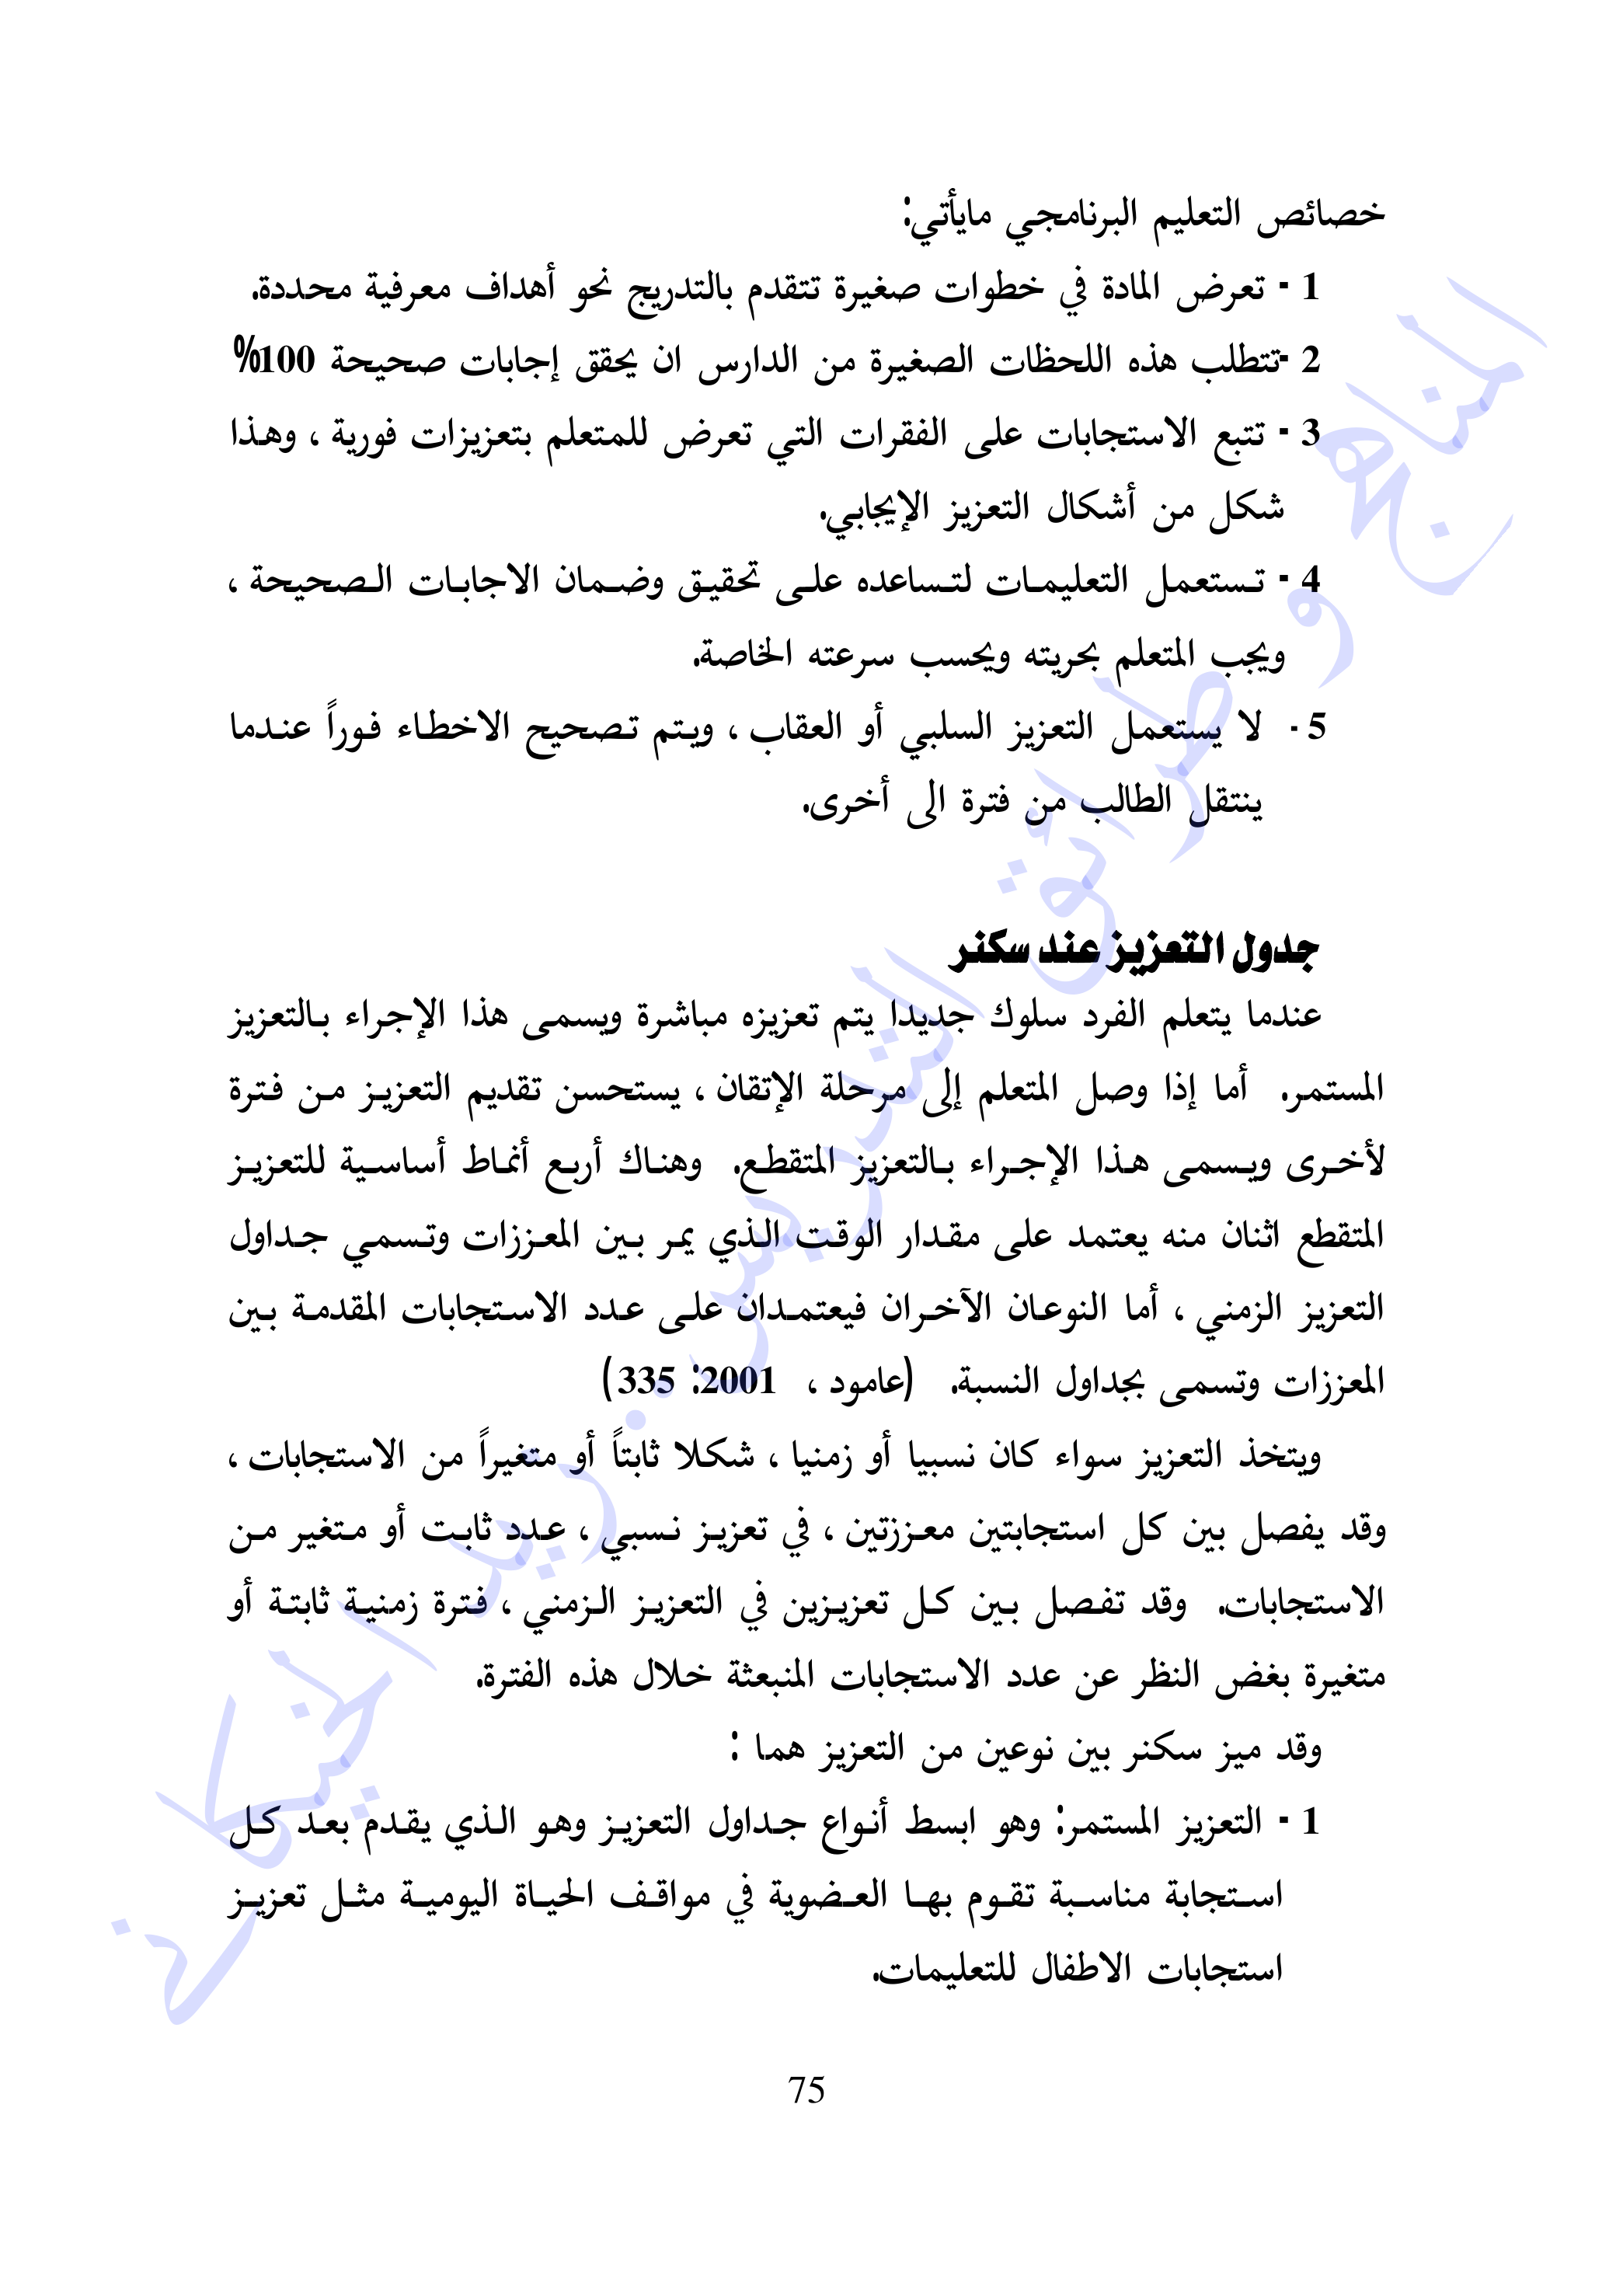 خصائص التعليم البرنامجي مايأتي:
1 - تعرض المادة في خطوات صغيرة تتقدم بالتدريج نحو أهداف معرفية محددة.
2 -تتطلب هذه اللحظات الصغيرة من الدارس ان يحقق إجابات صحيحة 100%
3 - تتبع الاستجابات على الفقرات التي تعرض للمتعلم بتعزيزات فورية ، وهذا
شكل من أشكال التعزيز الإيجابي.
4 - تستعمل التعليمات لتساعده على تحقيق وضمان الاجابات الصحيحة ،
ويجب المتعلم بحريته ويحسب سرعته الخاصة.
5 - لا يستعمل التعزيز السلبي أو العقاب ، ويتم تصحيح الاخطاء فوراً عندما
ينتقل الطالب من فترة الى أخرى.
جدول التعزيز عند سكنر
عندما يتعلم الفرد سلوك جديدا يتم تعزيزه مباشرة ويسمى هذا الإجراء بالتعزيز
المستمر. أما إذا وصل المتعلم إلى مرحلة الإتقان ، يستحسن تقديم التعزيز من فترة
لأخرى ويسمى هذا الإجراء بالتعزيز المتقطع. وهناك أربع أنماط أساسية للتعزيز
المتقطع اثنان منه يعتمد على مقدار الوقت الذي يمر بين المعززات وتسمي جداول
التعزيز الزمني ، أما النوعان الآخران فيعتمدان على عدد الاستجابات المقدمة بين
المعززات وتسمى بجداول النسبة. (عامود ، 2001: 335)
ويتخذ التعزيز سواء كان نسبيا أو زمنيا ، شكلا ثابتاً أو متغيراً من الاستجابات ،
وقد يفصل بين كل استجابتين معززتين ، في تعزيز نسبي ، عدد ثابت أو متغير من
الاستجابات. وقد تفصل بين كل تعزيزين في التعزيز الزمني ، فترة زمنية ثابتة أو
متغيرة بغض النظر عن عدد الاستجابات المنبعثة خلال هذه الفترة.
وقد ميز سكنر بين نوعين من التعزيز هما :
1 - التعزيز المستمر: وهو ابسط أنواع جداول التعزيز وهو الذي يقدم بعد كل
استجابة مناسبة تقوم بها العضوية في مواقف الحياة اليومية مثل تعزيز
استجابات الاطفال للتعليمات.
75
المناهج و طرائق التدريس